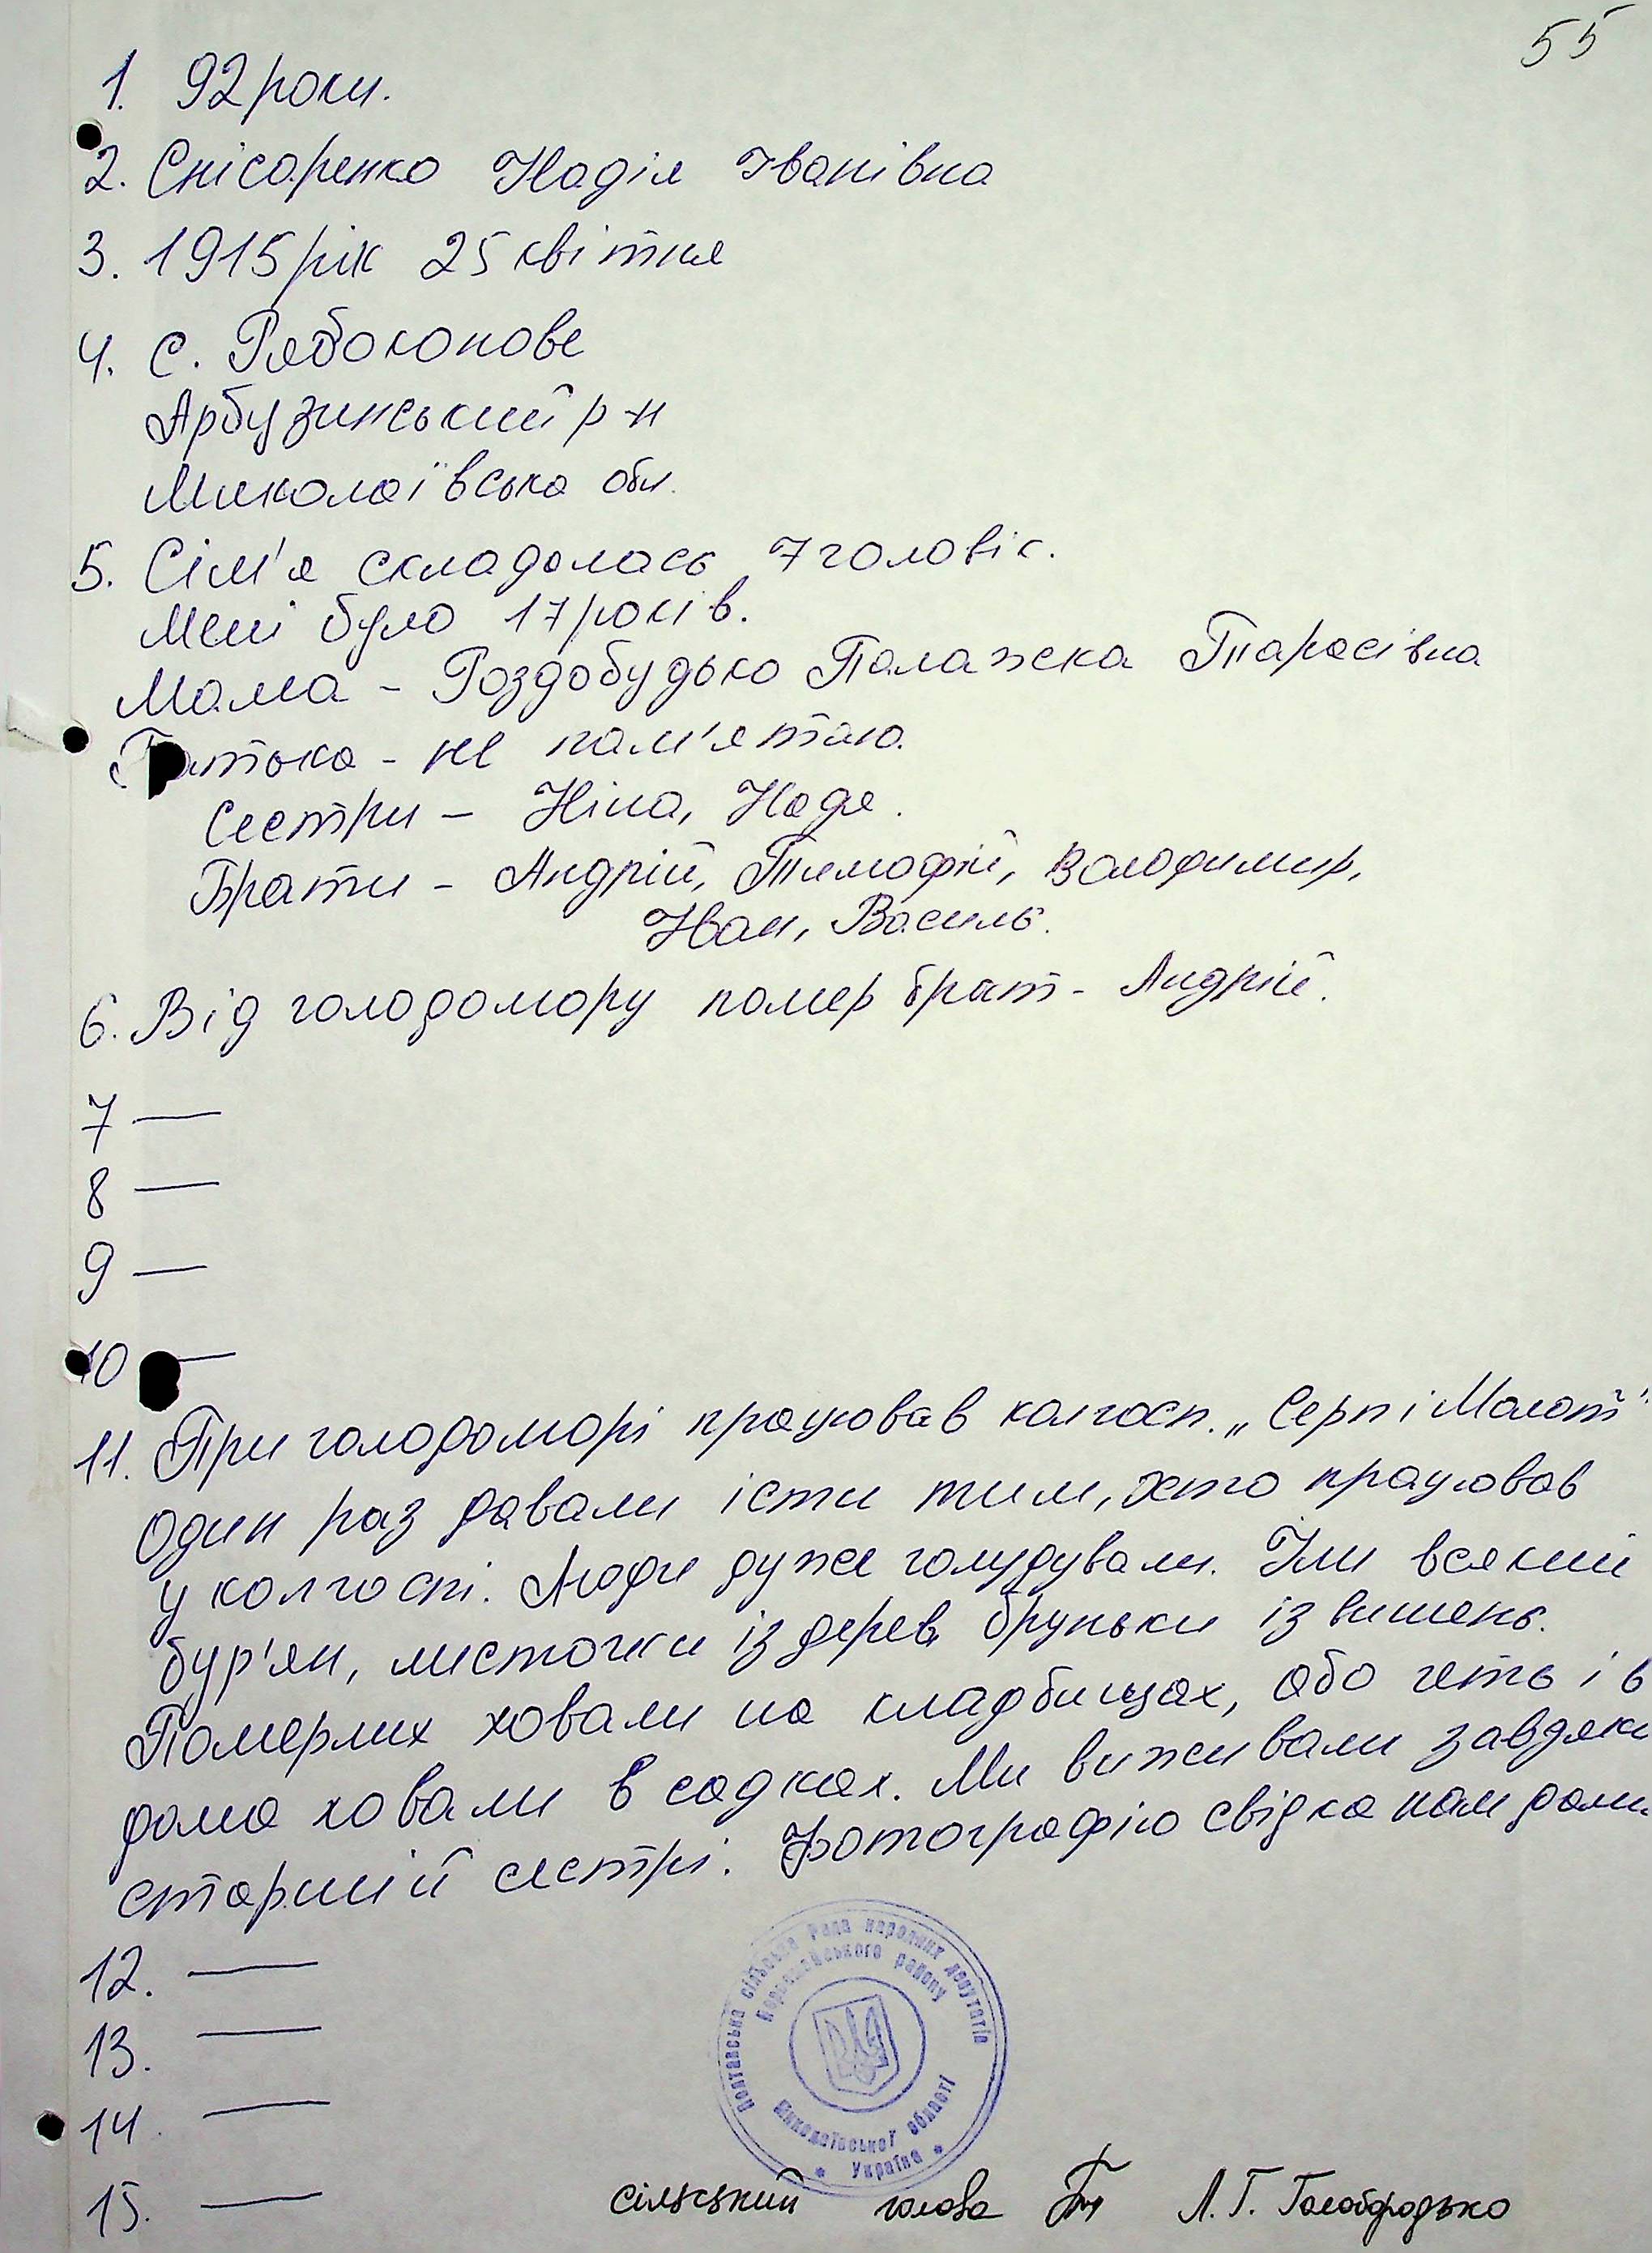 55
1. 92 роки.
2. Снісаренко Надія Іванівна
3. 1915 рік 25 квітня
4. с. Рябоконове
Арбузинський р-н
Миколаївська обл.
5. Сім'я складалась 7 чоловік.
Мені було 17 років.
Мама - Роздобудько Палажка Тарасівна
Батька - не пам'ятаю.
Сестри - Ніна, Надя.
Брати - Андрій, Тимофій, Володимир,
Іван, Василь.
6. Від голодомору помер брат - Андрій.
7 —
8 —
9 —
10 —
11. При голодоморі працював колгосп. „Серп і Молот"
один раз давали їсти тим, хто працював
у колгоспі. Люди дуже голудували. Їли всякий
бур'ян, листочки із дерев, бруньки із вишень.
Померлих ховали на кладбищах, або геть і в
дома ховали в садках. Ми виживали завдяки
старшій сестрі. Фотографію свідка нам дали.
12. —
13. —
14. —
15. —
Полтавська сільська Рада народних депутатів
Первомайського району
Миколаївської області
* Україна *
сільський голова Л. Г. Голобродько